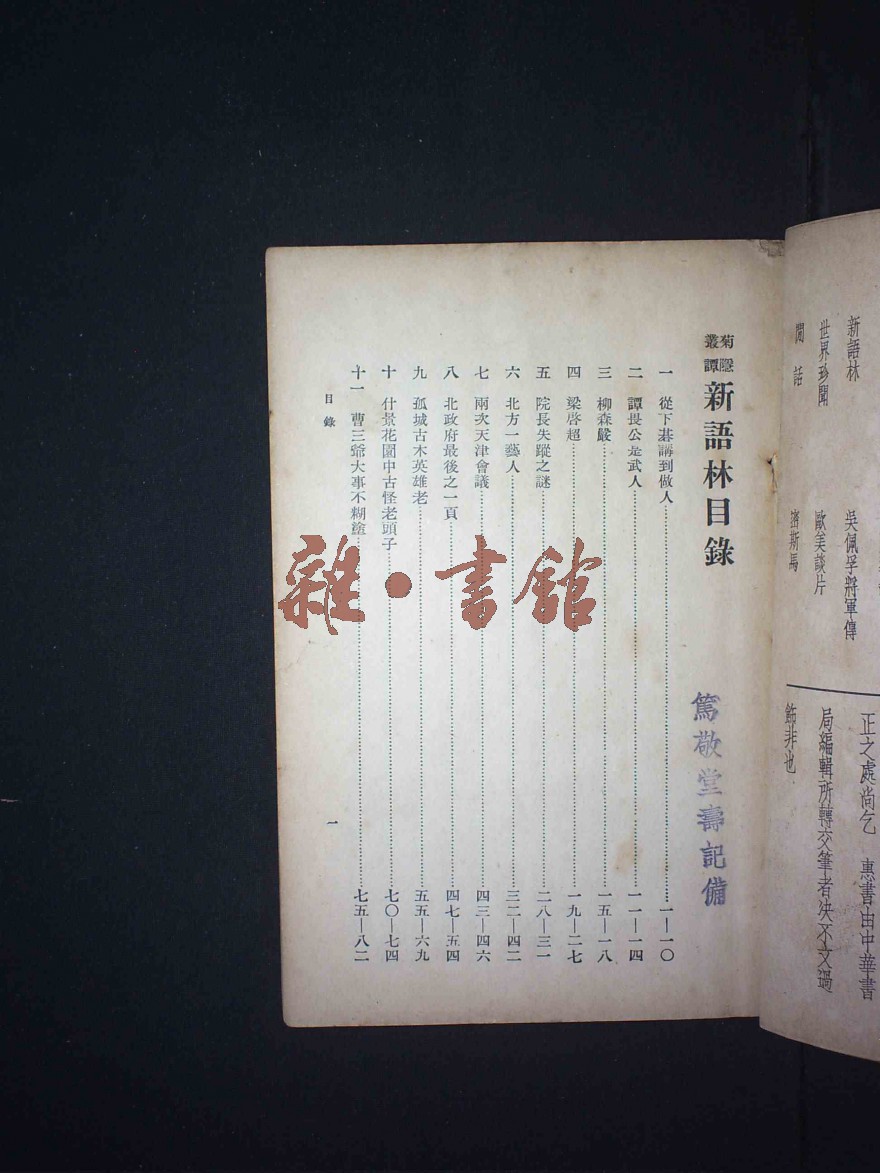 新語林
吳佩孚將軍傳
世界珍聞
歐美談片
閒話
密斯馬
正之處尚乞 惠書由中華書
局編輯所轉交筆者決不文過
飾非也
菊隱叢譚 新語林目錄
一 從下棊講到做人 一—一〇
二 譚畏公是武人 一一—一四
三 柳森嚴 一五—一八
四 梁啓超 一九—二七
五 院長失蹤之謎 二八—三一
六 北方一藝人 三二—四二
七 兩次天津會議 四三—四六
八 北政府最後之一頁 四七—五四
九 孤城古木英雄老 五五—六九
十 什景花園中古怪老頭子 七〇—七四
十一 曹三爺大事不糊塗 七五—八二
目錄
一
篤敬堂壽記備
雜·書館